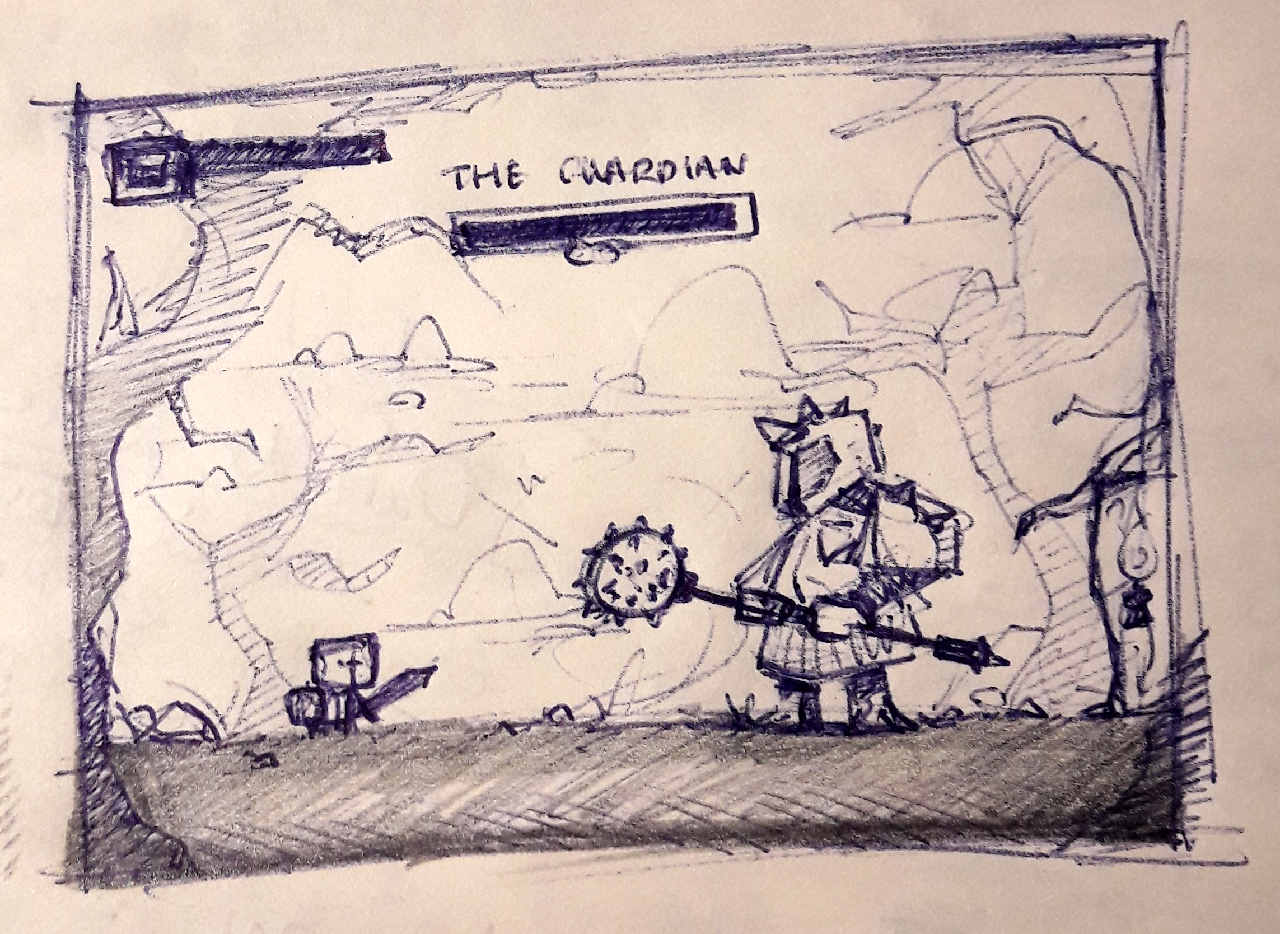 THE GUARDIAN